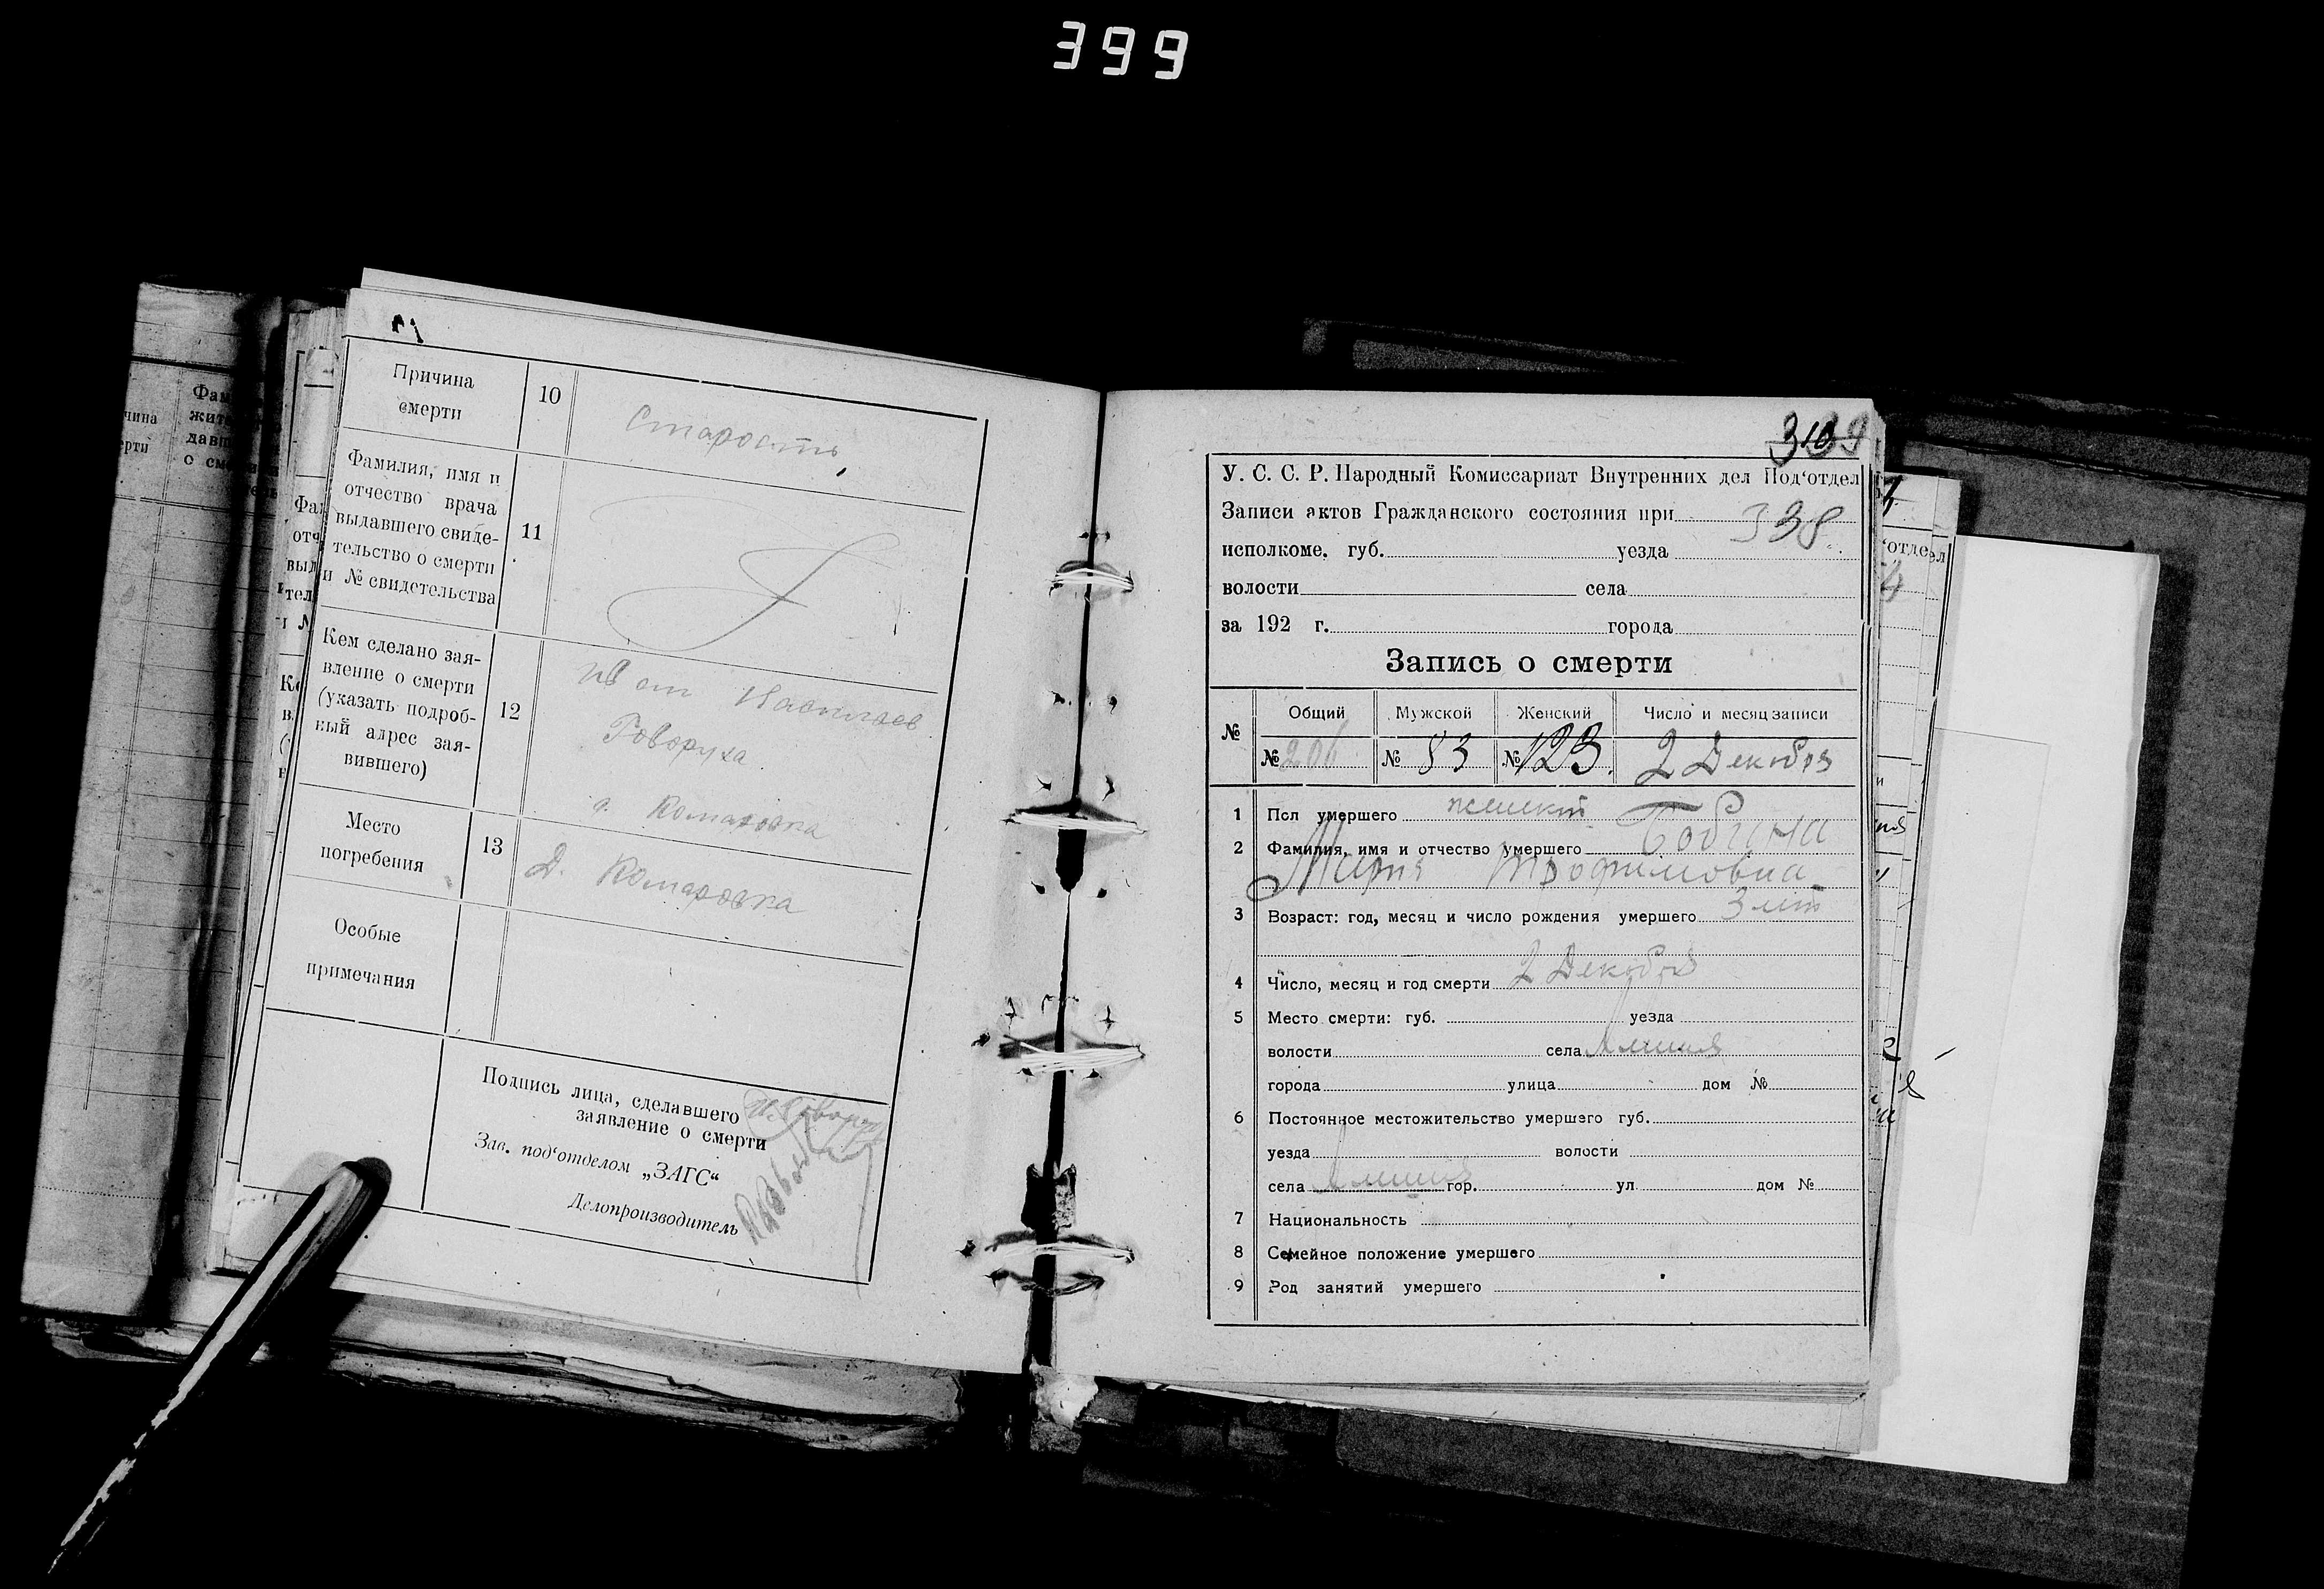 399
Причина
смерти
10
Старость
Фамилия, имя и
отчество врача
выдавшего свиде-
тельство о смерти
и № свидетельства
11
Кем сделано зая-
вление о смерти
(указать подроб-
ный адрес зая-
вившего)
12
Говоруха
Комаровка
Место
погребения
13
Д. Комаровка
Особые
примечания
Подпись лица, сделавшего
заявление о смерти
Зав. под‘отделом „ЗАГС“
Делопроизводитель
У. С. С. Р. Народный Комиссариат Внутренних дел Под‘отдел
Записи актов Гражданского состояния при 338
исполкоме. губ. уезда
волости села
за 192 г. города
Запись о смерти
№ Общий Мужской Женский Число и месяц записи
№ 206 № 83 № 123. 2 Декабря
1 Пол умершего женский
2 Фамилия, имя и отчество умершего
Мария Трофимовна
3 Возраст: год, месяц и число рождения умершего 3 лет
4 Число, месяц и год смерти 2 Декабря
5 Место смерти: губ. уезда
волости села
города улица дом №
6 Постоянное местожительство умершего губ.
уезда волости
села гор. ул. дом №
7 Национальность
8 Семейное положение умершего
9 Род занятий умершего